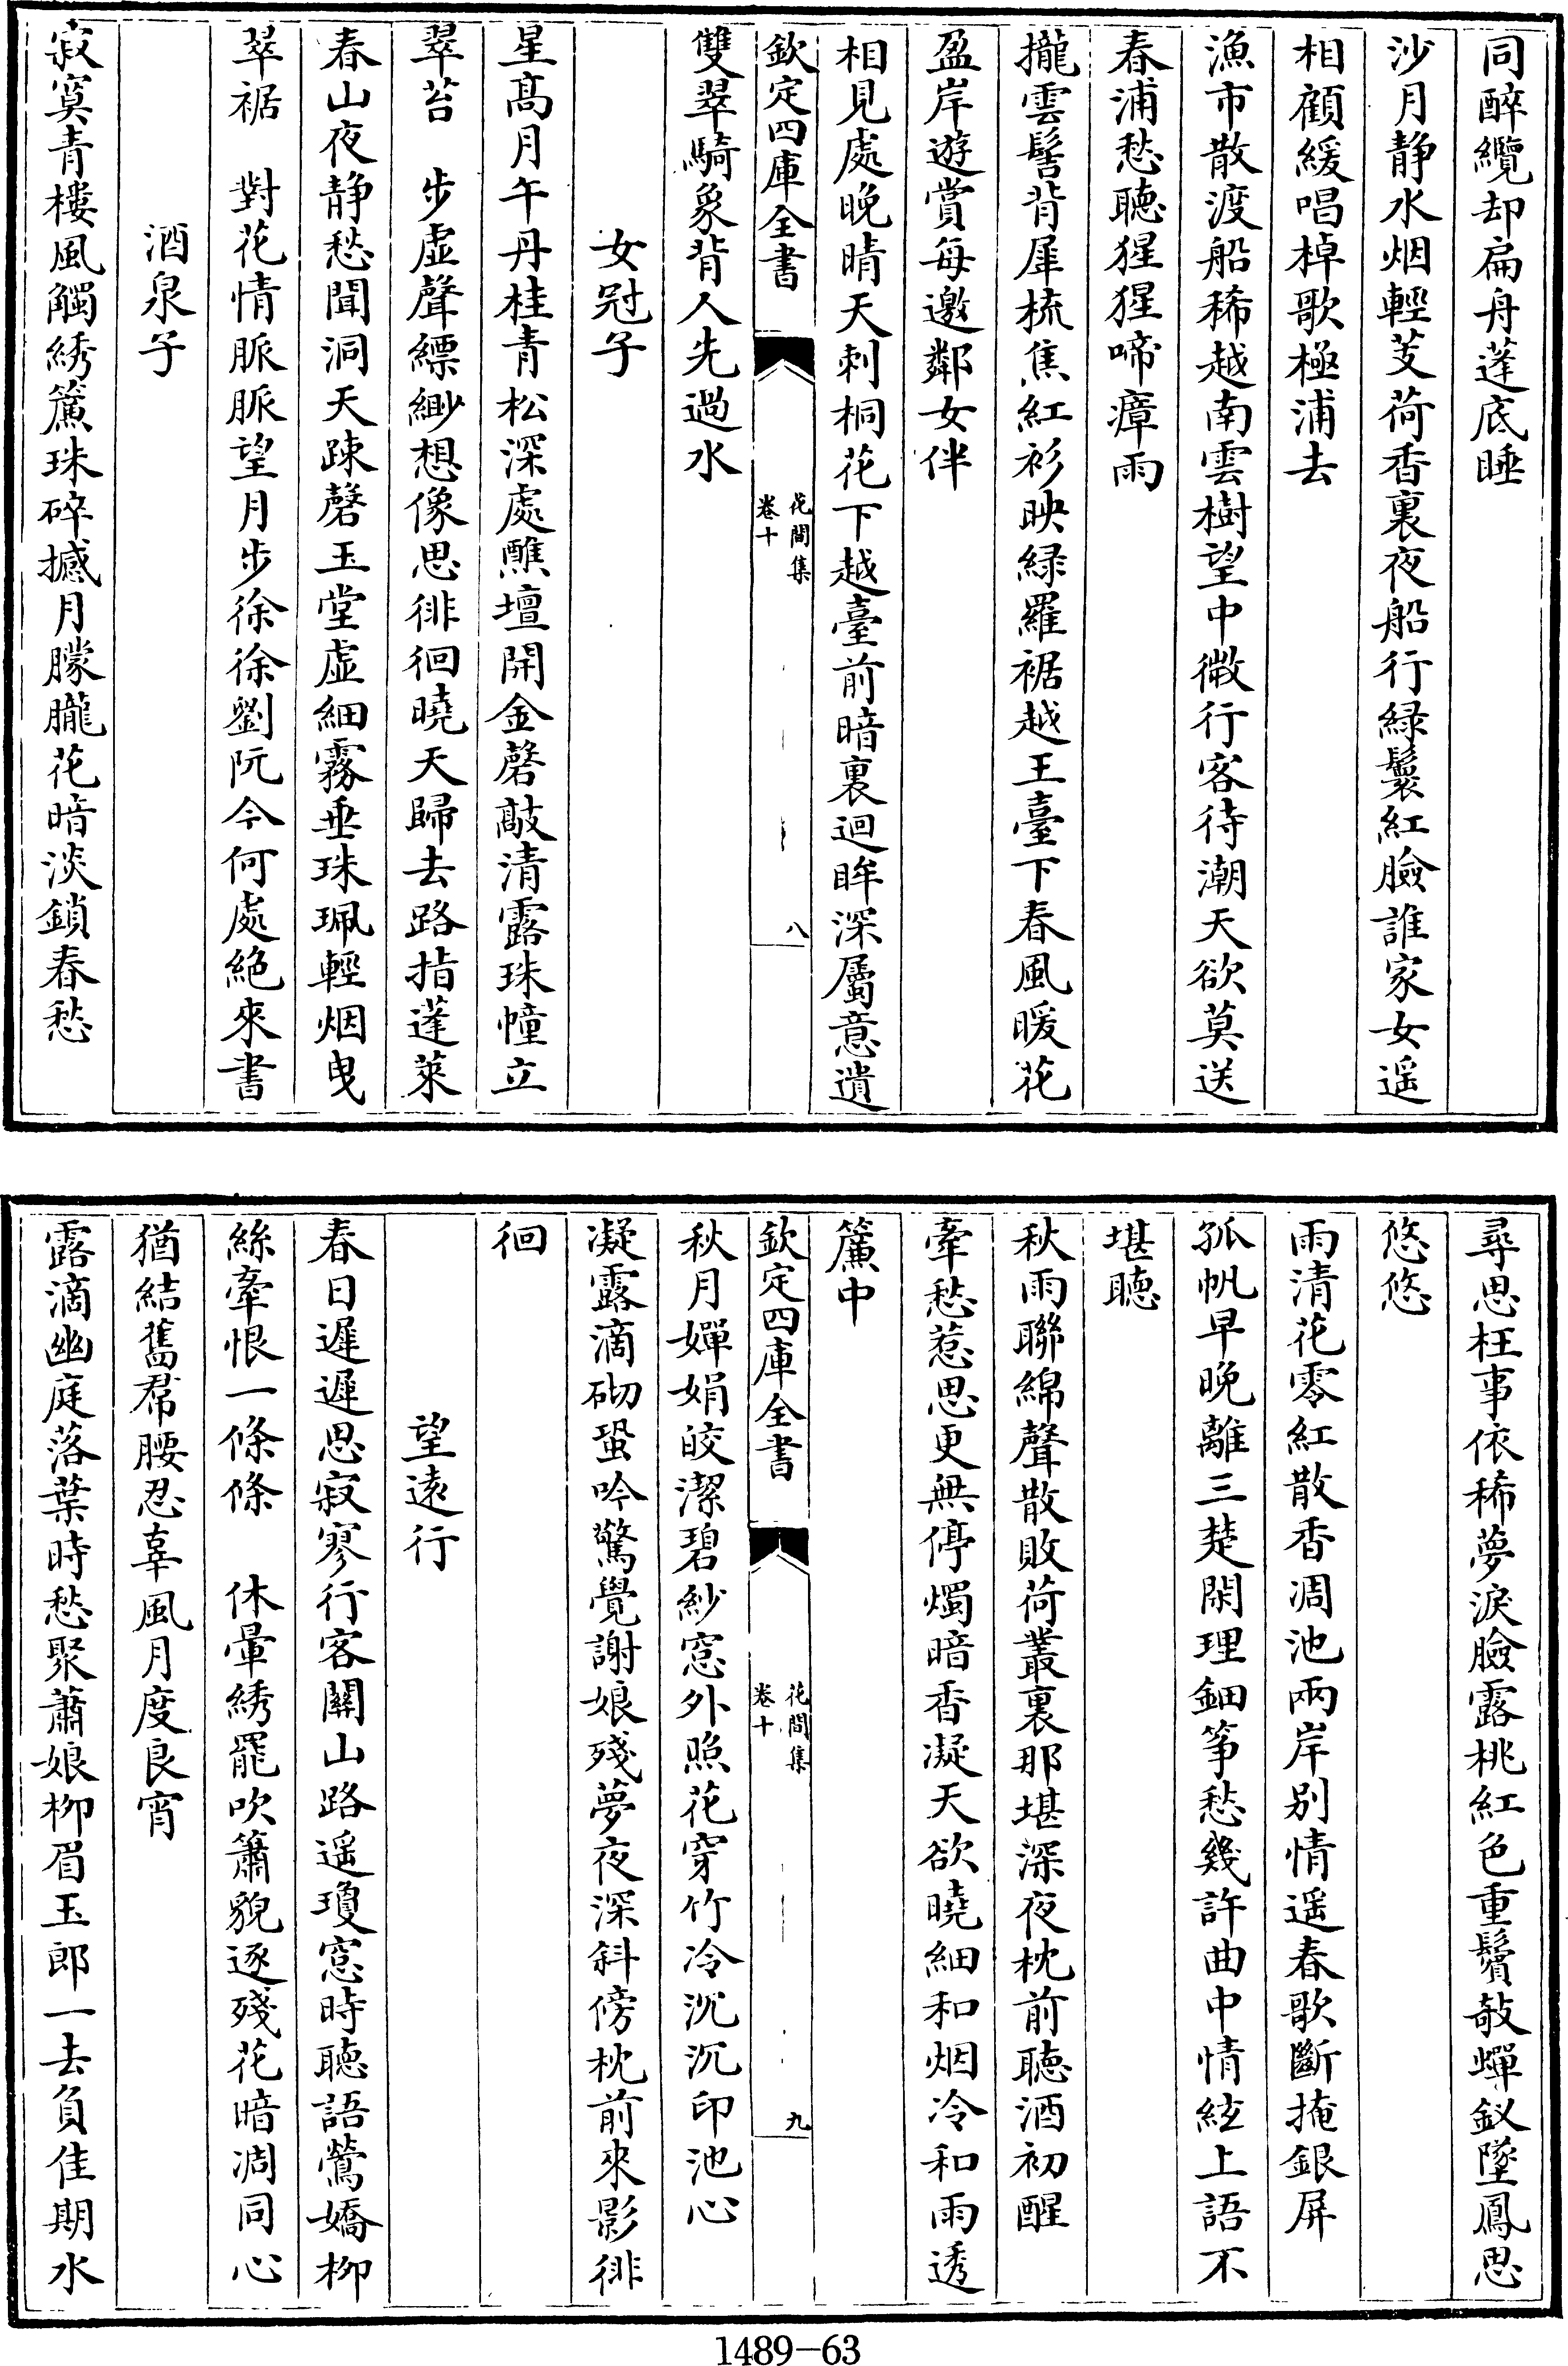 同醉纜却扁舟蓬底睡
沙月静水烟輕芰荷香裏夜船行緑鬟紅臉誰家女遥
相顧緩唱棹歌極浦去
漁市散渡船稀越南雲樹望中微行客待潮天欲莫送
春浦愁聽猩猩啼瘴雨
攏雲髻背犀梳焦紅衫映緑羅裾越王臺下春風暖花
盈岸遊賞每邀鄰女伴
相見處晚晴天刺桐花下越臺前暗裏迴眸深屬意遺
欽定四庫全書
花間集
卷十
八
雙翠騎象背人先過水
女冠子
星髙月午丹桂青松深處醮壇開金磬敲清露珠幢立
翠苔　步虛聲縹緲想像思徘徊曉天歸去路指蓬萊
春山夜静愁聞洞天疎磬玉堂虛細霧垂珠珮輕烟曳
翠裾　對花情脈脈望月步徐徐劉阮今何處絶來書
酒泉子
寂寞青樓風觸綉簾珠碎撼月朦朧花暗淡鎖春愁
尋思枉事依稀夢淚臉露桃紅色重鬢敧蟬釵墜鳳思
悠悠
雨清花零紅散香凋池兩岸别情遥春歌斷掩銀屏
孤帆早晚離三楚閑理鈿筝愁幾許曲中情絃上語不
堪聽
秋雨聯綿聲散敗荷叢裏那堪深夜枕前聽酒初醒
牽愁惹思更無停燭暗香凝天欲曉細和烟冷和雨透
簾中
欽定四庫全書
花間集
卷十
九
秋月嬋娟皎潔碧紗窓外照花穿竹冷沉沉印池心
凝露滴砌蛩吟驚覺謝娘殘夢夜深斜傍枕前來影徘
徊
望遠行
春日遲遲思寂寥行客關山路遥瓊窓時聽語鶯嬌柳
絲牽恨一條條　休暈綉罷吹簫貌逐殘花暗凋同心
猶結舊帬腰忍辜風月度良宵
露滴幽庭落葉時愁聚蕭娘柳眉玉郎一去負佳期水
1489-63